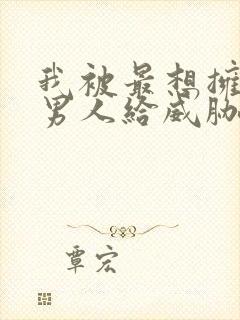 我被最想擁
男人給威脅
覃宏